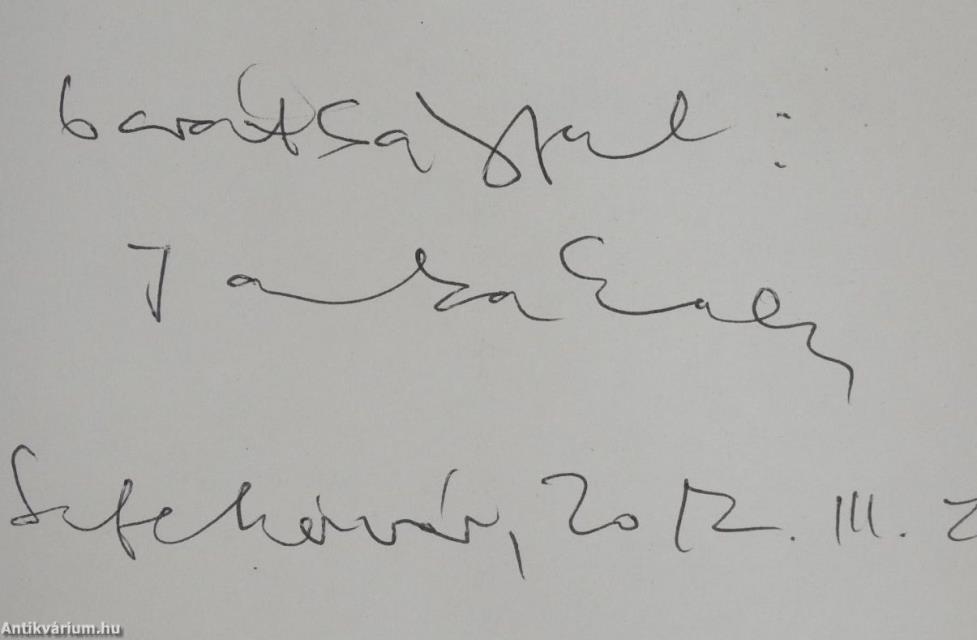 barátsággal:
Szfehérvár, 2012. III. 2
Antikvárium.hu